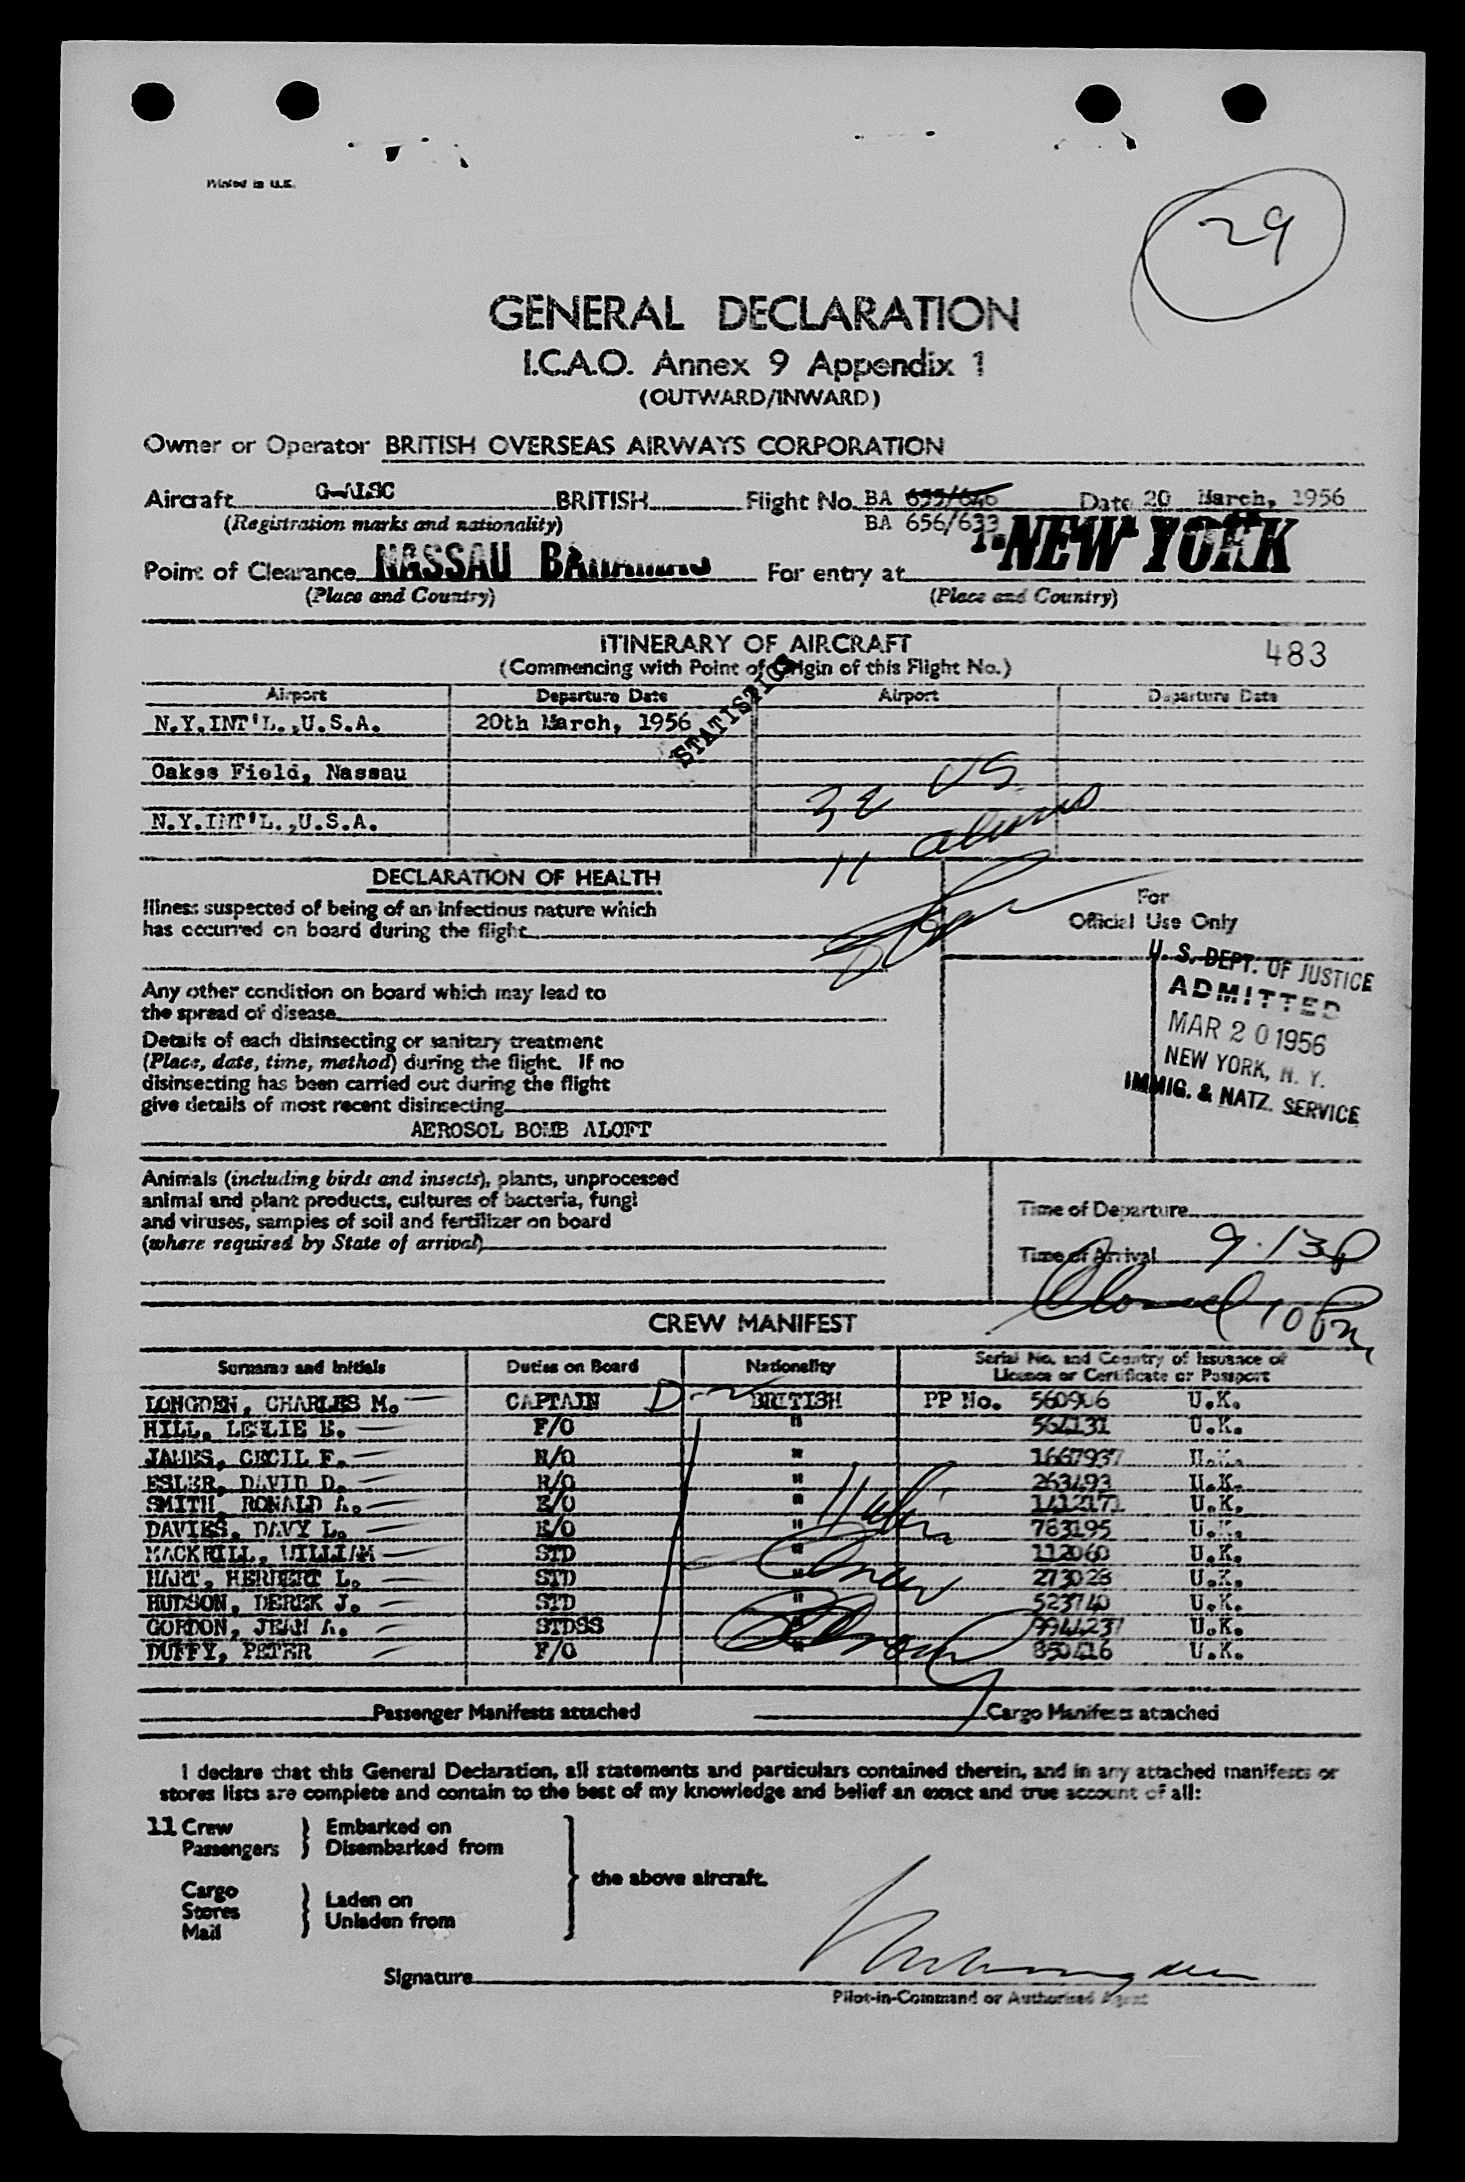 Printed in U.K.
29
GENERAL DECLARATION
I.C.A.O. Annex 9 Appendix 1
(OUTWARD/INWARD)
Owner or Operator BRITISH OVERSEAS AIRWAYS CORPORATION
Aircraft G-ALSC BRITISH Flight No. BA 655/646 Date 20 March, 1956
(Registration marks and nationality) BA 656/633
Point of Clearance NASSAU BAHAMAS For entry at NEW YORK
(Place and Country) (Place and Country)
ITINERARY OF AIRCRAFT 483
(Commencing with Point of Origin of this Flight No.)
Airport Departure Date Airport Departure Date
STATISTICS
N.Y.INT'L.,U.S.A. 20th March, 1956
Oakes Field, Nassau
32 US
N.Y.INT'L.,U.S.A.
11 aliens
DECLARATION OF HEALTH
Illness suspected of being of an infectious nature which
has occurred on board during the flight
For
Official Use Only
U. S. DEPT. OF JUSTICE
ADMITTED
MAR 20 1956
NEW YORK, N. Y.
IMMIG. & NATZ. SERVICE
Any other condition on board which may lead to
the spread of disease
Details of each disinsecting or sanitary treatment
(Place, date, time, method) during the flight. If no
disinsecting has been carried out during the flight
give details of most recent disinsecting
AEROSOL BOMB ALOFT
Animals (including birds and insects), plants, unprocessed
animal and plant products, cultures of bacteria, fungi
and viruses, samples of soil and fertilizer on board
(where required by State of arrival)
Time of Departure
Time of Arrival 9.13 p
10 Pm
CREW MANIFEST
Surname and Initials Duties on Board Nationality Serial No. and Country of Issuance of
Licence or Certificate or Passport
LONGDEN, CHARLES M. CAPTAIN BRITISH PP No. 560906 U.K.
HILL, LESLIE E. F/O " 564131 U.K.
JAMES, CECIL F. N/O " 1667937 U.K.
ESLER, DAVID D. R/O " 263493 U.K.
SMITH, RONALD A. E/O " 1412171 U.K.
DAVIES, DAVY L. E/O " 783195 U.K.
MACKRILL, WILLIAM STD " 112060 U.K.
HART, HERBERT L. STD " 273028 U.K.
HUDSON, DEREK J. STD " 523740 U.K.
GORDON, JEAN A. STDSS " 9944237 U.K.
DUFFY, PETER F/O " 850416 U.K.
Passenger Manifests attached Cargo Manifests attached
I declare that this General Declaration, all statements and particulars contained therein, and in any attached manifests or
stores lists are complete and contain to the best of my knowledge and belief an exact and true account of all:
11 Crew Embarked on
Passengers Disembarked from
the above aircraft.
Cargo
Stores Laden on
Mail Unladen from
Signature
Pilot-in-Command or Authorised Agent